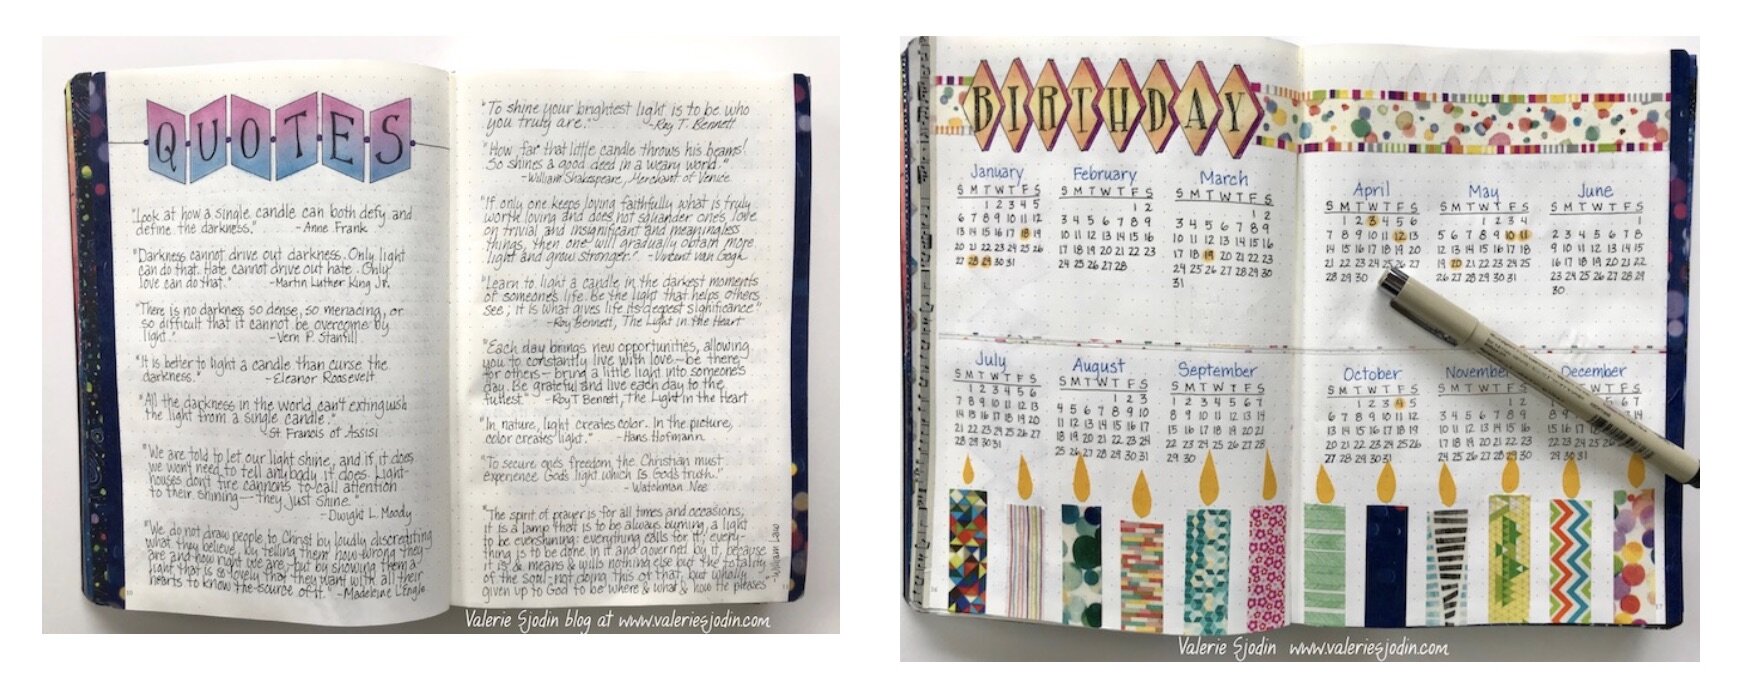 QUOTES
"Look at how a single candle can both defy and
define the darkness." - Anne Frank
"Darkness cannot drive out darkness. Only light
can do that. Hate cannot drive out hate. Only
love can do that." - Martin Luther King Jr.
"There is no darkness so dense, so menacing, or
so difficult that it cannot be overcome by
light." - Vern P. Stanfill
"It is better to light a candle than curse the
darkness." - Eleanor Roosevelt
"All the darkness in the world can't extinguish
the light from a single candle."
St Francis of Assisi
"We are told to let our light shine, and if it does
we won't need to tell anybody it does. Light-
houses don't fire cannons to call attention
to their shining—they just shine."
- Dwight L. Moody
"We do not draw people to Christ by loudly discrediting
what they believe, by telling them how wrong they
are and how right we are, but by showing them a
light that is so lovely that they want with all their
hearts to know the source of it." - Madeleine L'Engle
10
"To shine your brightest light is to be who
you truly are." - Roy T. Bennett
"How far that little candle throws his beams!
So shines a good deed in a weary world."
- William Shakespeare, Merchant of Venice
"If only one keeps loving faithfully what is truly
worth loving and does not squander one's love
on trivial and insignificant and meaningless
things, then one will gradually obtain more
light and grow stronger." - Vincent van Gogh
"Learn to light a candle in the darkest moments
of someone's life. Be the light that helps others
see; it is what gives life its deepest significance"
- Roy Bennett, The Light in the Heart
"Each day brings new opportunities, allowing
you to constantly live with love—be there
for others—bring a little light into someone's
day. Be grateful and live each day to the
fullest." - Roy T Bennett, The Light in the Heart
"In nature, light creates color. In the picture,
color creates light." - Hans Hofmann
"To secure one's freedom the Christian must
experience God's light which is God's truth."
- Watchman Nee
"The spirit of prayer is for all times and occasions;
it is a lamp that is to be always burning, a light
to be ever shining: everything calls for it; every-
thing is to be done in it and governed by it, because
it is & means & wills nothing else but the totality
of the soul-not doing this or that, but wholly
given up to God to be where & what & how He pleases"
- William Law
Valerie Sjodin blog at www.valeriesjodin.com
BIRTHDAY
January
S M T W T F S
1 2 3 4 5
6 7 8 9 10 11 12
13 14 15 16 17 18 19
20 21 22 23 24 25 26
27 28 29 30 31
February
S M T W T F S
1 2
3 4 5 6 7 8 9
10 11 12 13 14 15 16
17 18 19 20 21 22 23
24 25 26 27 28
March
S M T W T F S
1 2
3 4 5 6 7 8 9
10 11 12 13 14 15 16
17 18 19 20 21 22 23
24 25 26 27 28 29 30
31
April
S M T W T F S
1 2 3 4 5 6
7 8 9 10 11 12 13
14 15 16 17 18 19 20
21 22 23 24 25 26 27
28 29 30
May
S M T W T F S
1 2 3 4
5 6 7 8 9 10 11
12 13 14 15 16 17 18
19 20 21 22 23 24 25
26 27 28 29 30 31
June
S M T W T F S
1
2 3 4 5 6 7 8
9 10 11 12 13 14 15
16 17 18 19 20 21 22
23 24 25 26 27 28 29
30
July
S M T W T F S
1 2 3 4 5 6
7 8 9 10 11 12 13
14 15 16 17 18 19 20
21 22 23 24 25 26 27
28 29 30 31
August
S M T W T F S
1 2 3
4 5 6 7 8 9 10
11 12 13 14 15 16 17
18 19 20 21 22 23 24
25 26 27 28 29 30 31
September
S M T W T F S
1 2 3 4 5 6 7
8 9 10 11 12 13 14
15 16 17 18 19 20 21
22 23 24 25 26 27 28
29 30
October
S M T W T F S
1 2 3 4 5
6 7 8 9 10 11 12
13 14 15 16 17 18 19
20 21 22 23 24 25 26
27 28 29 30 31
November
S M T W T F S
1 2
3 4 5 6 7 8 9
10 11 12 13 14 15 16
17 18 19 20 21 22 23
24 25 26 27 28 29 30
December
T F S
29 30 31
Valerie Sjodin www.valeriesjodin.com